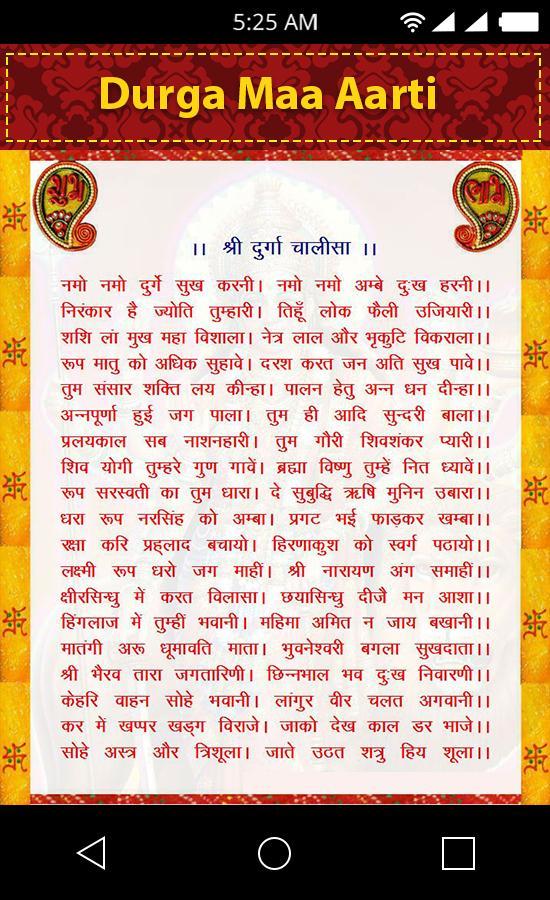 5:25 AM
Durga Maa Aarti
शुभ लाभ
।। श्री दुर्गा चालीसा ।।
नमो नमो दुर्गे सुख करनी। नमो नमो अम्बे दुःख हरनी।।
निरंकार है ज्योति तुम्हारी। तिहूँ लोक फैली उजियारी।।
शशि लां मुख महा विशाला। नेत्र लाल और भृकुटि विकराला।।
रूप मातु को अधिक सुहावे। दरश करत जन अति सुख पावे।।
तुम संसार शक्ति लय कीन्हा। पालन हेतु अन्न धन दीन्हा।।
अन्नपूर्णा हुई जग पाला। तुम ही आदि सुन्दरी बाला।।
प्रलयकाल सब नाशनहारी। तुम गौरी शिवशंकर प्यारी।।
शिव योगी तुम्हरे गुण गावें। ब्रह्मा विष्णु तुम्हें नित ध्यावें।।
रूप सरस्वती का तुम धारा। दे सुबुद्धि ऋषि मुनिन उबारा।।
धरा रूप नरसिंह को अम्बा। प्रगट भई फाड़कर खम्बा।।
रक्षा करि प्रह्लाद बचायो। हिरणाकुश को स्वर्ग पठायो।।
लक्ष्मी रूप धरो जग माहीं। श्री नारायण अंग समाहीं।।
क्षीरसिन्धु में करत विलासा। छयासिन्धु दीजै मन आशा।।
हिंगलाज में तुम्हीं भवानी। महिमा अमित न जाय बखानी।।
मातंगी अरू धूमावति माता। भुवनेश्वरी बगला सुखदाता।।
श्री भैरव तारा जगतारिणी। छिन्नभाल भव दुःख निवारणी।।
केहरि वाहन सोहे भवानी। लांगुर वीर चलत अगवानी।।
कर में खप्पर खड्ग विराजे। जाको देख काल डर भाजे।।
सोहे अस्त्र और त्रिशूला। जाते उठत शत्रु हिय शूला।।